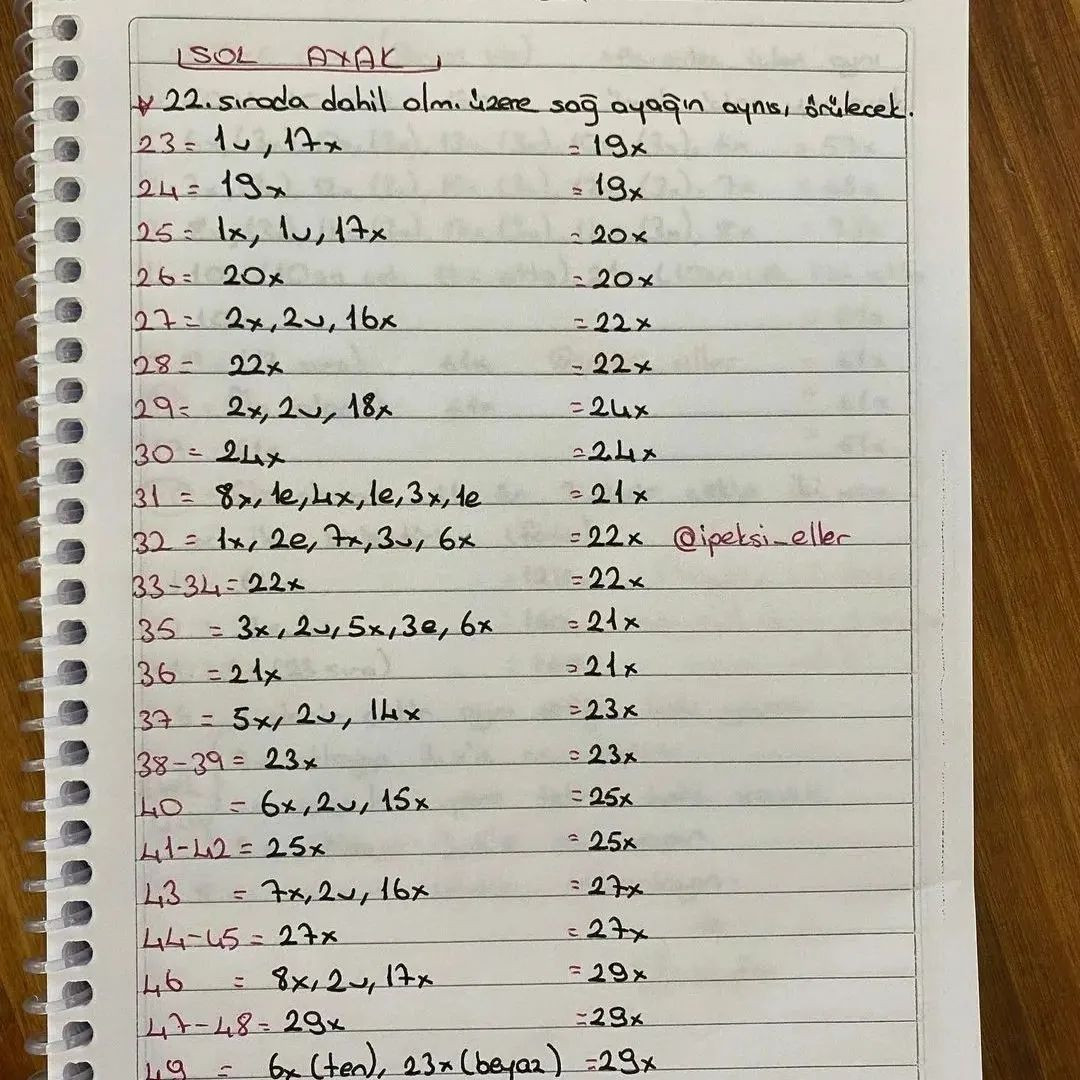 SOL AYAK
* 22. sırada dahil olm. üzere sağ ayağın aynısı örülecek.
23 = 1v, 17x = 19x
24 = 19x = 19x
25 = 1x, 1v, 17x = 20x
26 = 20x = 20x
27 = 2x, 2v, 16x = 22x
28 = 22x = 22x
29 = 2x, 2v, 18x = 24x
30 = 24x = 24x
31 = 8x, 1e, 4x, 1e, 3x, 1e = 21x
32 = 1x, 2e, 7x, 3v, 6x = 22x @ipeksi_eller
33-34 = 22x = 22x
35 = 3x, 2v, 5x, 3e, 6x = 21x
36 = 21x = 21x
37 = 5x, 2v, 14x = 23x
38-39 = 23x = 23x
40 = 6x, 2v, 15x = 25x
41-42 = 25x = 25x
43 = 7x, 2v, 16x = 27x
44-45 = 27x = 27x
46 = 8x, 2v, 17x = 29x
47-48 = 29x = 29x
49 = 6x (ten), 23x (beyaz) = 29x